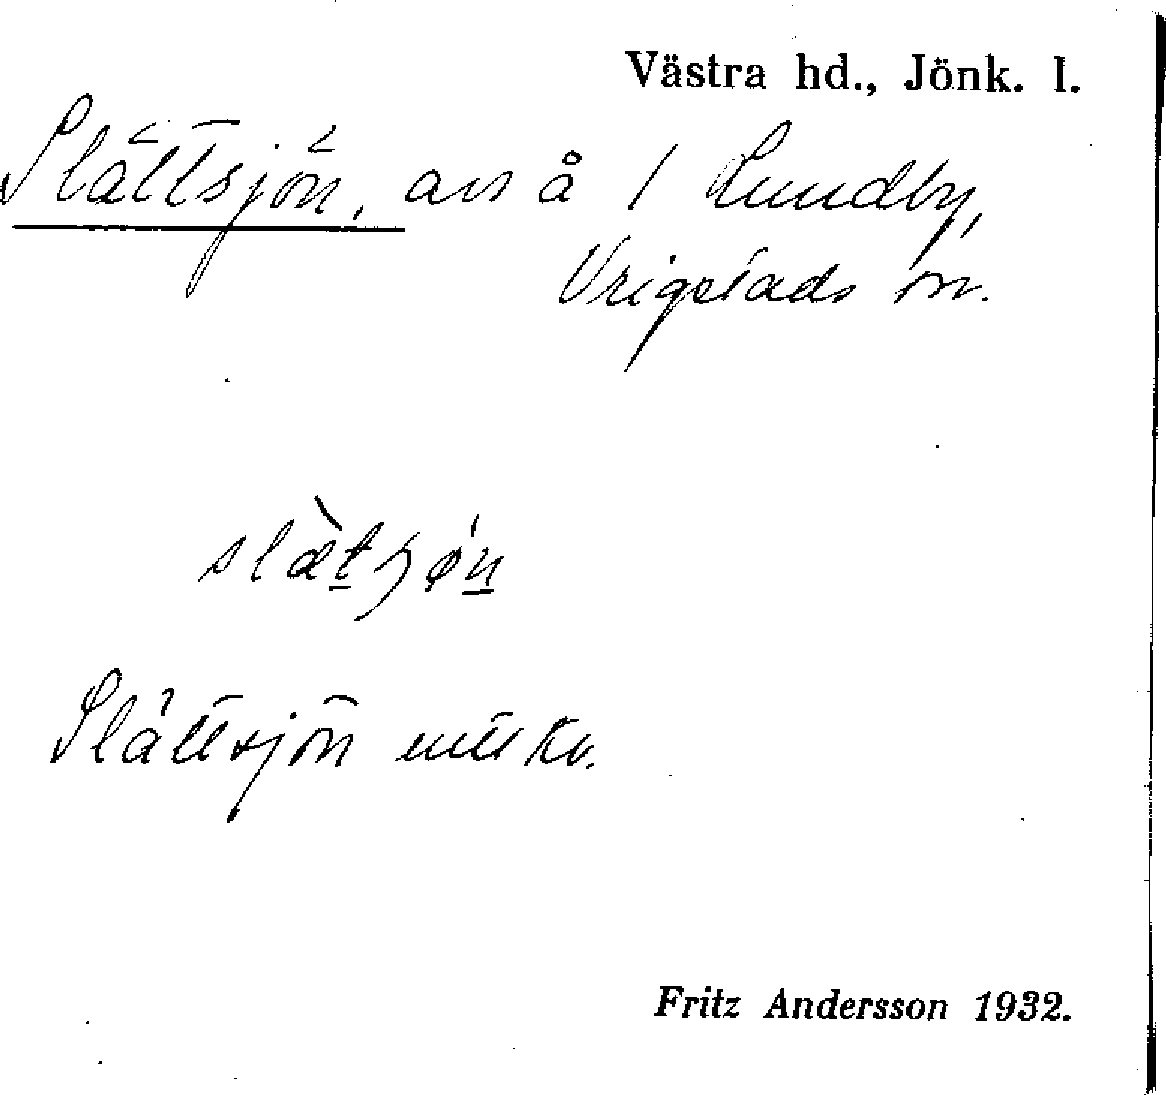 Västra hd., Jönk. l.
Slättsjön, avs å 1 Lundby,
Vrigstads sn.
slætʃøn
Slättsjön
Fritz Andersson 1932.